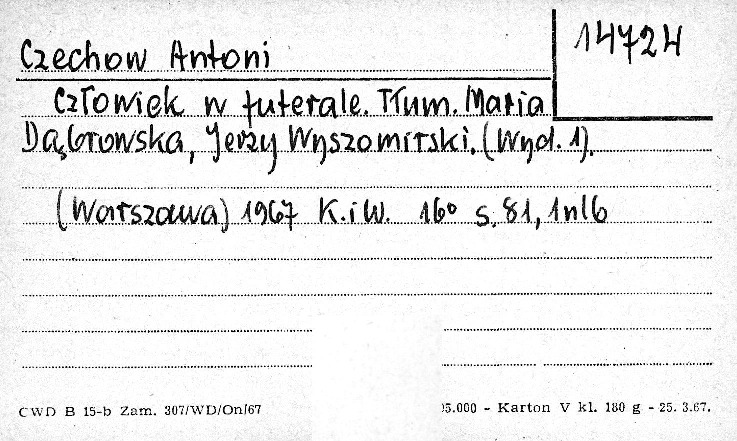 14724
Czechow Antoni
Człowiek w futerale. Tłum. Maria
Dąbrowska, Jerzy Wyszomirski. (Wyd. 1).
(Warszawa) 1967 K.iW. 16° s. 81, 1nlb
CWD B 15-b Zam. 307/WD/On/67
5.000 - Karton V kl. 180 g - 25. 3.67.